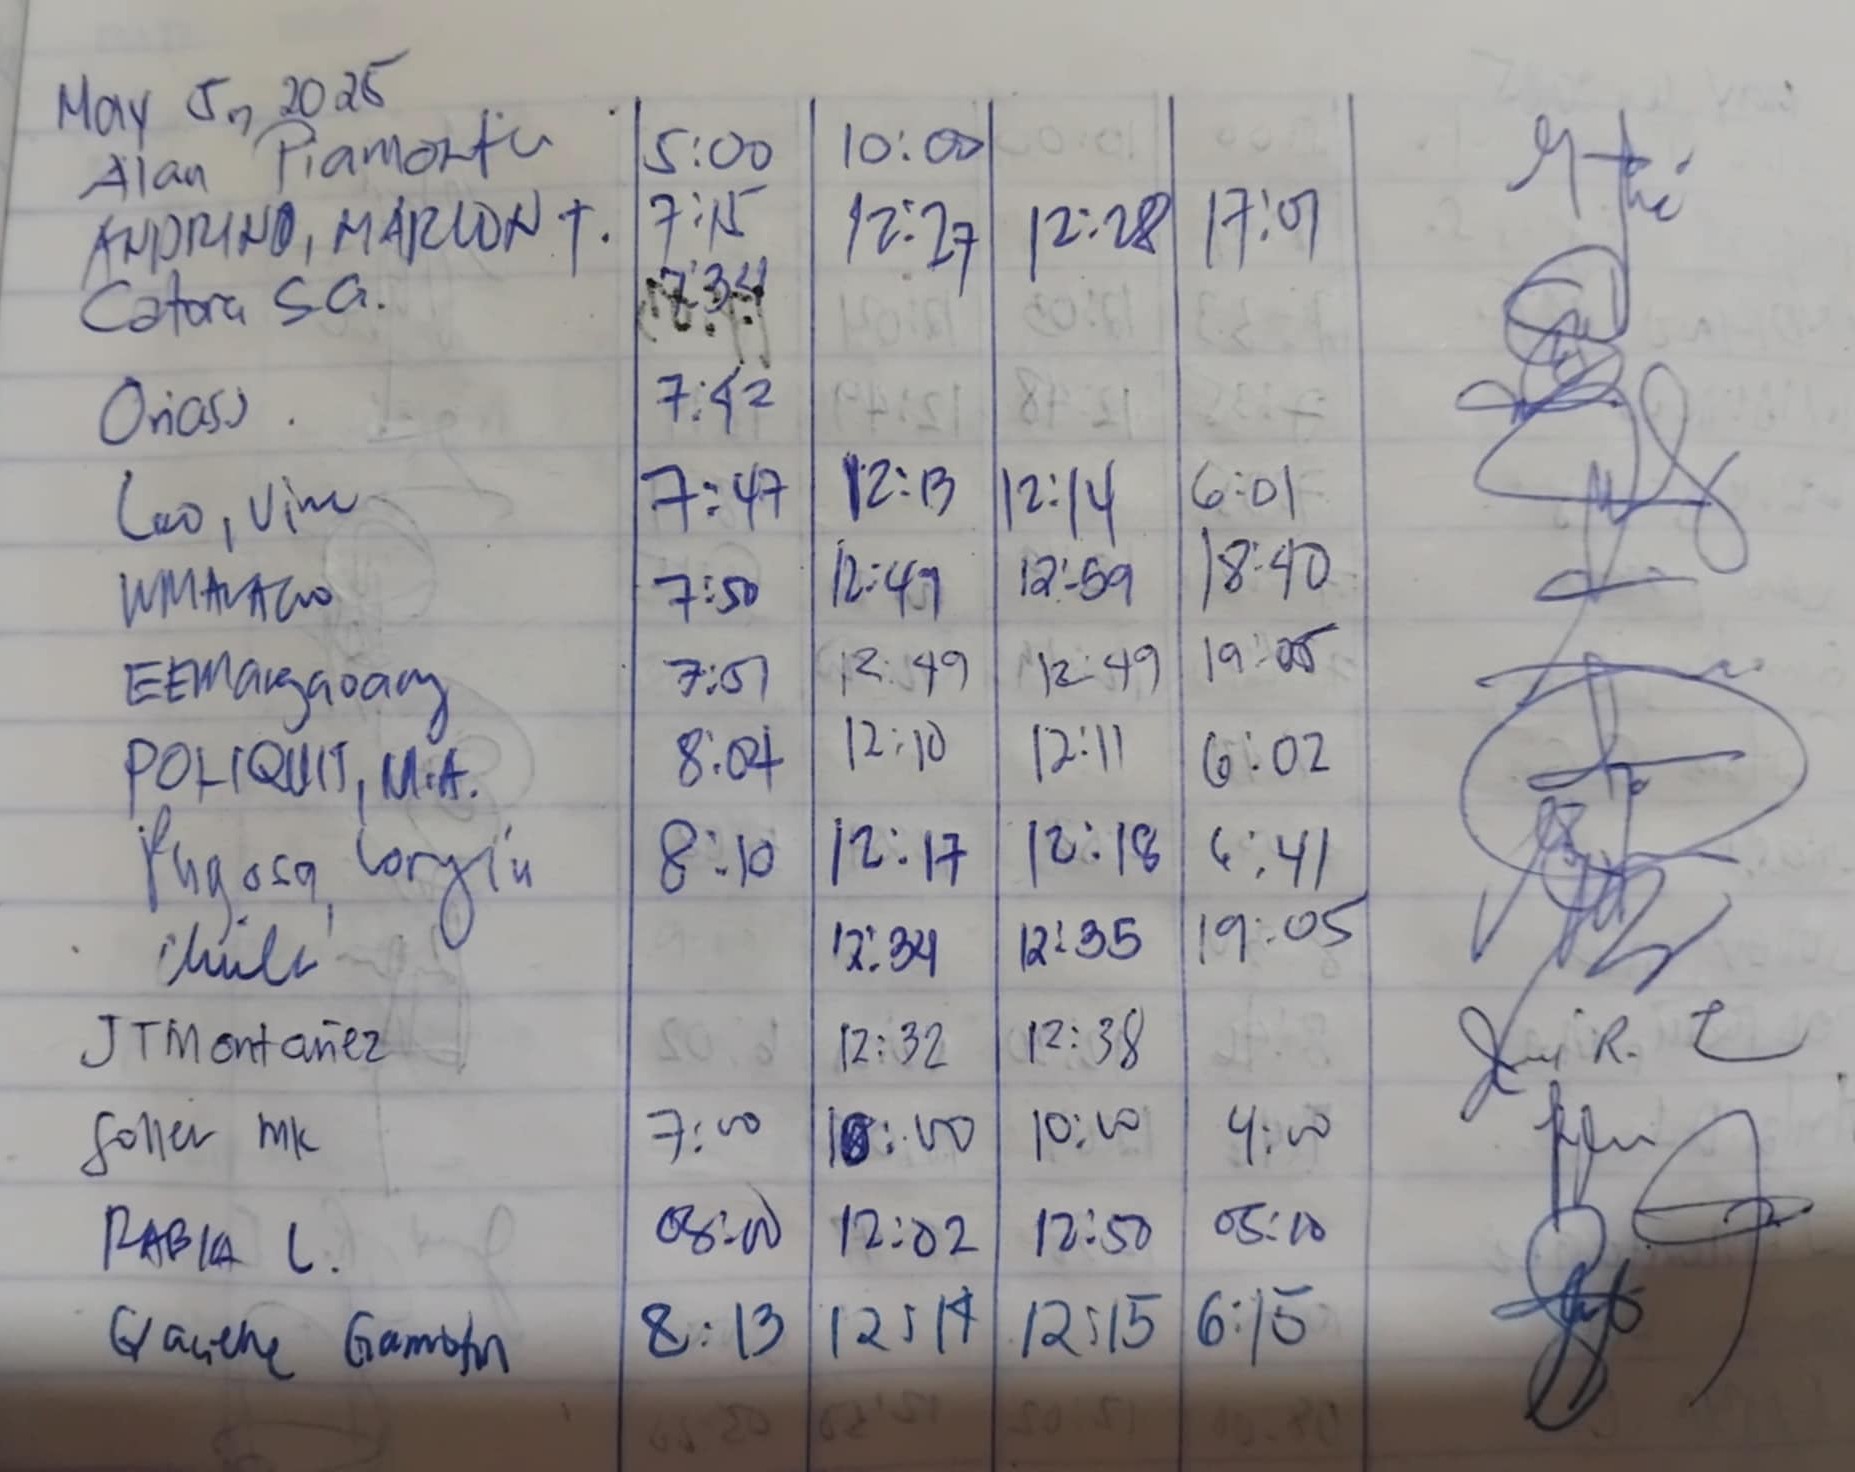 May 5, 2025
Alan Piamonte 5:00 10:00
ANDRINO, MARLON T. 7:15 12:27 12:28 17:01
Catora S.G. 7:34
Oriass. 7:42
Lao, Vim 7:47 12:13 12:14 6:01
7:50 12:49 12:59 18:40
EEMangaoang 7:51 12:49 12:49 19:05
POLIQUIT, M.A. 8:04 12:10 12:11 6:02
Pugosa, 8:10 12:17 12:18 6:41
12:34 12:35 19:05
JTMontañez 12:32 12:38
Soller MK 7:00 10:00 10:00 4:00
RABIA L. 08:00 12:02 12:50 05:00
8:13 12:14 12:15 6:15